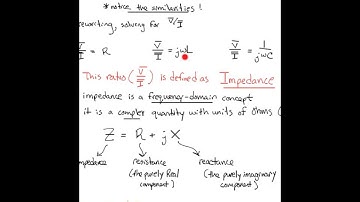 * notice the similarities!
rewriting, solving for V̅/I̅
V̅/I̅ = R    V̅/I̅ = jωL    V̅/I̅ = 1/jωC
This ratio (V̅/I̅) is defined as Impedance
impedance is a frequency-domain concept
it is a complex quantity with units of Ohms (
Z = R + j X
impedance    resistance    reactance
(the purely Real    (the purely imaginary
component)    component)